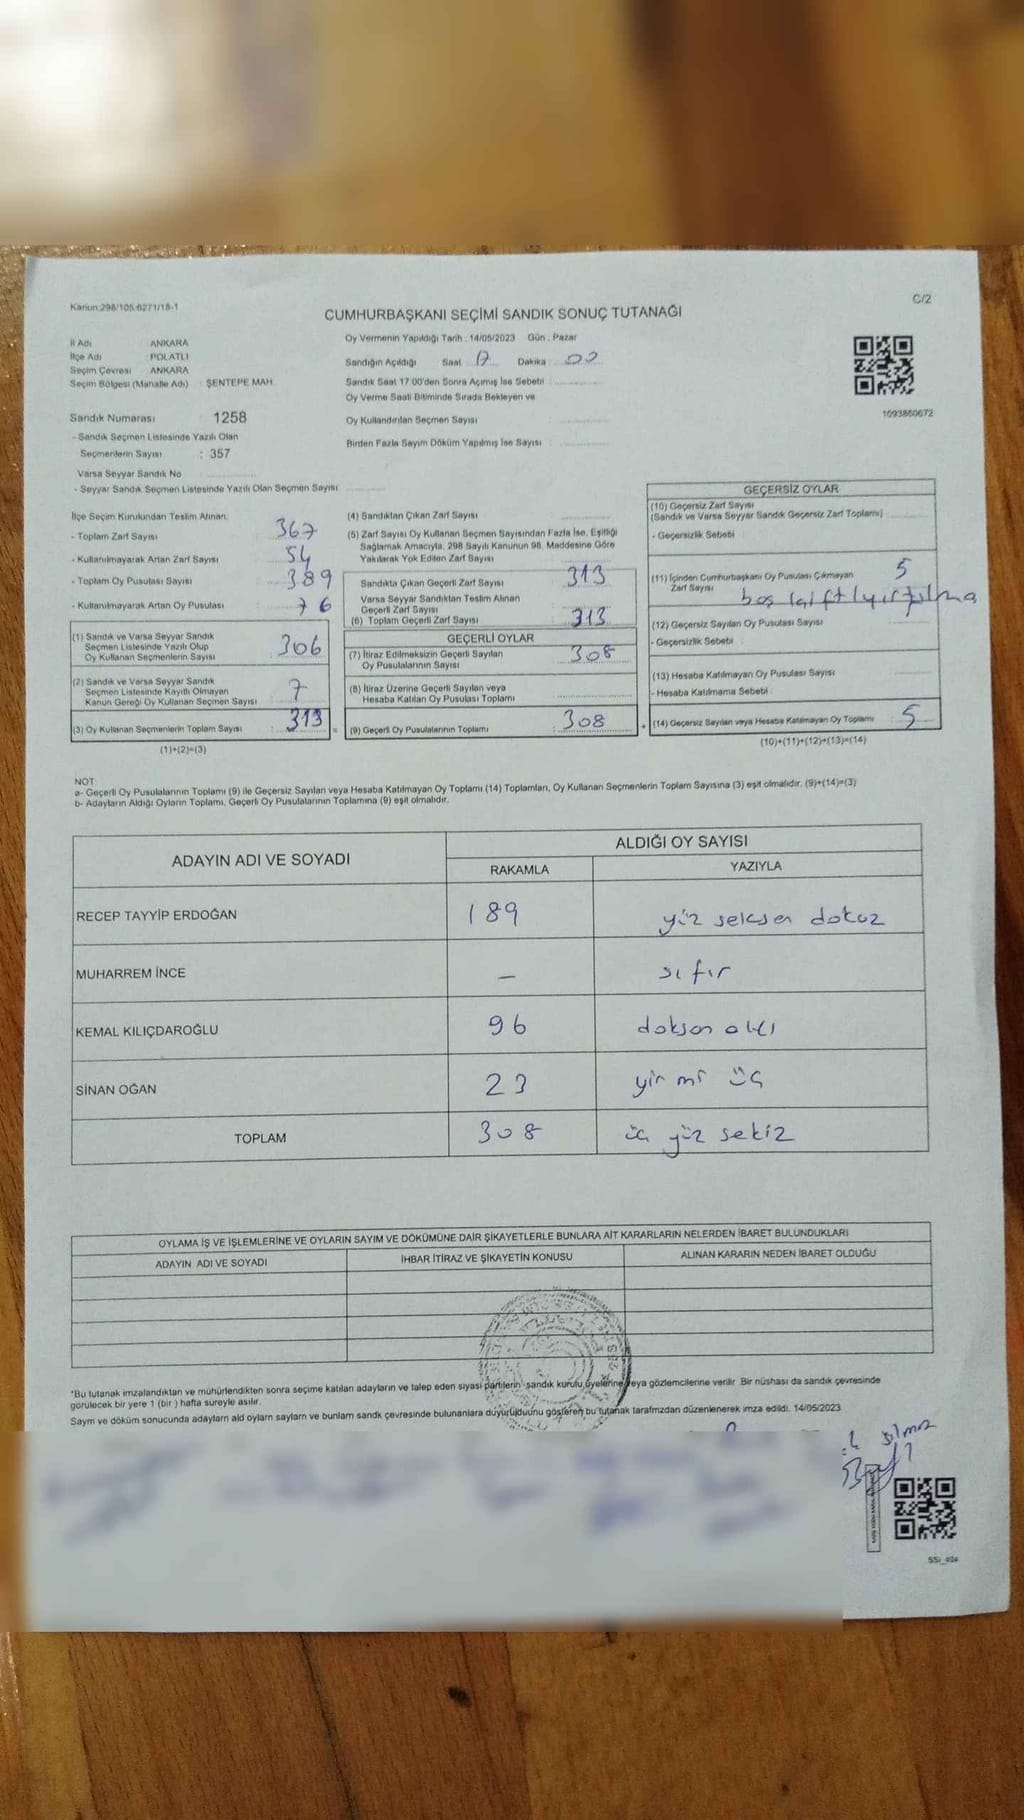 Kanun:298/105.6271/18-1
C/2
CUMHURBAŞKANI SEÇİMİ SANDIK SONUÇ TUTANAĞI
İl Adı ANKARA
İlçe Adı POLATLI
Seçim Çevresi ANKARA
Seçim Bölgesi (Mahalle Adı) : ŞENTEPE MAH.
Sandık Numarası : 1258
- Sandık Seçmen Listesinde Yazılı Olan
Seçmenlerin Sayısı : 357
Varsa Seyyar Sandık No
- Seyyar Sandık Seçmen Listesinde Yazılı Olan Seçmen Sayısı
Oy Vermenin Yapıldığı Tarih : 14/05/2023 Gün : Pazar
Sandığın Açıldığı Saat 17 Dakika : 00
Sandık Saat 17:00'den Sonra Açımış İse Sebebi :
Oy Verme Saati Bitiminde Sırada Bekleyen ve
Oy Kullandırılan Seçmen Sayısı :
Birden Fazla Sayım Döküm Yapılmış İse Sayısı :
1093860672
İlçe Seçim Kurulundan Teslim Alınan:
- Toplam Zarf Sayısı 367
- Kullanılmayarak Artan Zarf Sayısı 54
- Toplam Oy Pusulası Sayısı 389
- Kullanılmayarak Artan Oy Pusulası 76
(1) Sandık ve Varsa Seyyar Sandık
Seçmen Listesinde Yazılı Olup
Oy Kullanan Seçmenlerin Sayısı 306
(2) Sandık ve Varsa Seyyar Sandık
Seçmen Listesinde Kayıtlı Olmayan
Kanun Gereği Oy Kullanan Seçmen Sayısı 7
(3) Oy Kullanan Seçmenlerin Toplam Sayısı 313
(1)+(2)=(3)
(4) Sandıktan Çıkan Zarf Sayısı
(5) Zarf Sayısı Oy Kullanan Seçmen Sayısından Fazla İse, Eşitliği
Sağlamak Amacıyla, 298 Sayılı Kanunun 98. Maddesine Göre
Yakılarak Yok Edilen Zarf Sayısı
Sandıkta Çıkan Geçerli Zarf Sayısı 313
Varsa Seyyar Sandıktan Teslim Alınan
Geçerli Zarf Sayısı
(6) Toplam Geçerli Zarf Sayısı 313
GEÇERLİ OYLAR
(7) İtiraz Edilmeksizin Geçerli Sayılan
Oy Pusulalarının Sayısı 308
(8) İtiraz Üzerine Geçerli Sayılan veya
Hesaba Katılan Oy Pusulası Toplamı
= (9) Geçerli Oy Pusulalarının Toplamı 308
GEÇERSİZ OYLAR
(10) Geçersiz Zarf Sayısı
(Sandık ve Varsa Seyyar Sandık Geçersiz Zarf Toplamı)
- Geçersizlik Sebebi
(11) İçinden Cumhurbaşkanı Oy Pusulası Çıkmayan
Zarf Sayısı 5
boş
(12) Geçersiz Sayılan Oy Pusulası Sayısı
- Geçersizlik Sebebi :
(13) Hesaba Katılmayan Oy Pusulası Sayısı
- Hesaba Katılmama Sebebi
+ (14) Geçersiz Sayılan veya Hesaba Katılmayan Oy Toplamı 5
(10)+(11)+(12)+(13)=(14)
NOT
a- Geçerli Oy Pusulalarının Toplamı (9) ile Geçersiz Sayılan veya Hesaba Katılmayan Oy Toplamı (14) Toplamları, Oy Kullanan Seçmenlerin Toplam Sayısına (3) eşit olmalıdır. (9)+(14)=(3)
b- Adayların Aldığı Oyların Toplamı, Geçerli Oy Pusulalarının Toplamına (9) eşit olmalıdır.
ADAYIN ADI VE SOYADI ALDIĞI OY SAYISI
RAKAMLA YAZIYLA
RECEP TAYYİP ERDOĞAN 189 yüz seksen dokuz
MUHARREM İNCE — sıfır
KEMAL KILIÇDAROĞLU 96 doksan altı
SİNAN OĞAN 23 yirmi üç
TOPLAM 308 üç yüz sekiz
OYLAMA İŞ VE İŞLEMLERİNE VE OYLARIN SAYIM VE DÖKÜMÜNE DAİR ŞİKAYETLERLE BUNLARA AİT KARARLARIN NELERDEN İBARET BULUNDUKLARI
ADAYIN ADI VE SOYADI İHBAR İTİRAZ VE ŞİKAYETİN KONUSU ALINAN KARARIN NEDEN İBARET OLDUĞU
*Bu tutanak imzalandıktan ve mühürlendikten sonra seçime katılan adayların ve talep eden siyasi partilerin sandık kurulu üyelerine veya gözlemcilerine verilir. Bir nüshası da sandık çevresinde
görülecek bir yere 1 (bir ) hafta süreyle asılır.
Sayım ve döküm sonucunda adayların ald oyların sayların ve bunlam sandk çevresinde bulunanlara duyurulduunu gösteren bu tutanak tarafmzdan düzenlenerek imza edildi. 14/05/2023
SSi_404